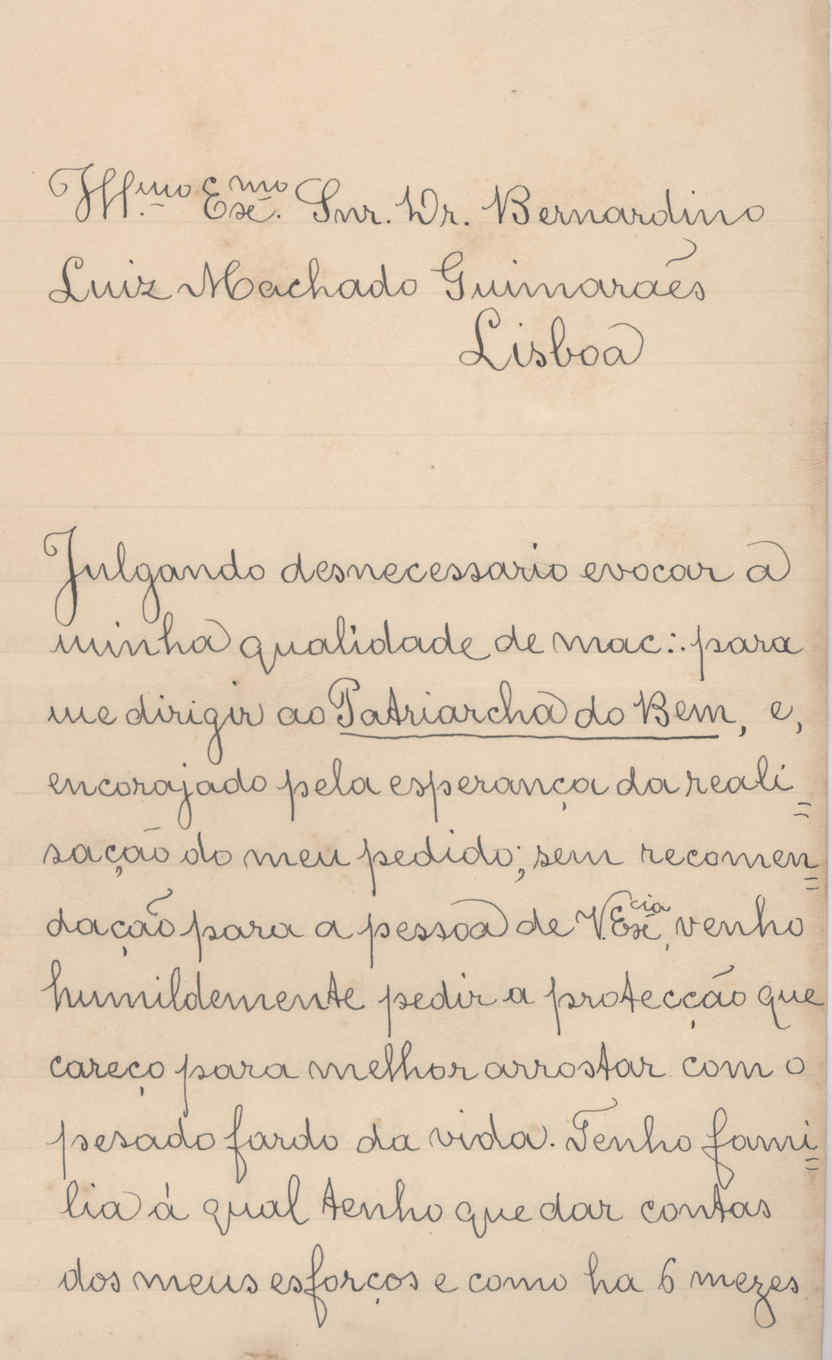 Illmo. Exmo. Snr. Dr. Bernardino
Luiz Machado Guimarães
Lisboa
Julgando desnecessario evocar a
minha qualidade de mac∴ para
me dirigir ao Patriarcha do Bem, e,
encorajado pela esperança da reali=
sação do meu pedido; sem recomen=
dação para a pessoa de V. Excia, venho
humildemente pedir a protecção que
careço para melhor arrostar com o
pesado fardo da vida. Tenho fami=
lia á qual tenho que dar contas
dos meus esforços e como ha 6 mezes